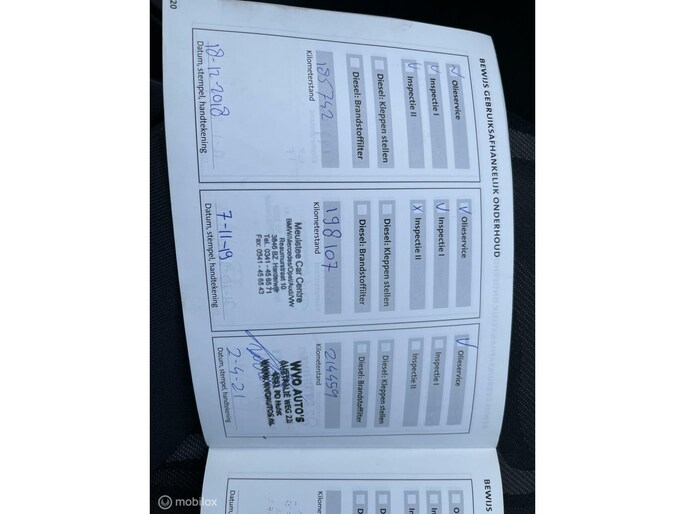 BEWIJS GEBRUIKSAFHANKELIJK ONDERHOUD
Olieservice
Inspectie I
Inspectie II
Diesel: Kleppen stellen
Diesel: Brandstoffilter
Kilometerstand
185742
18-12-2018
Datum, stempel, handtekening
Olieservice
Inspectie I
Inspectie II
Diesel: Kleppen stellen
Diesel: Brandstoffilter
Kilometerstand
198107
Meulstee Car Centre
BMW/Mercedes/Opel/Audi/VW
Reaumurstraat 10
3846 BZ Harderwijk
Tel. 0341 - 45 65 71
Fax: 0341 - 45 65 43
7-11-19
Datum, stempel, handtekening
Olieservice
Inspectie I
Inspectie II
Diesel: Kleppen stellen
Diesel: Brandstoffilter
Kilometerstand
214459
WYO AUTO'S
AUSTRALIË WEG 22
WWW.WYOAUTOS.NL
2-4-21
Datum, stempel, handtekening
20
BEWIJS
Olieservice
Inspectie I
Inspectie II
Diesel:
Diesel:
Kilometerstand
Datum,
© mobilox